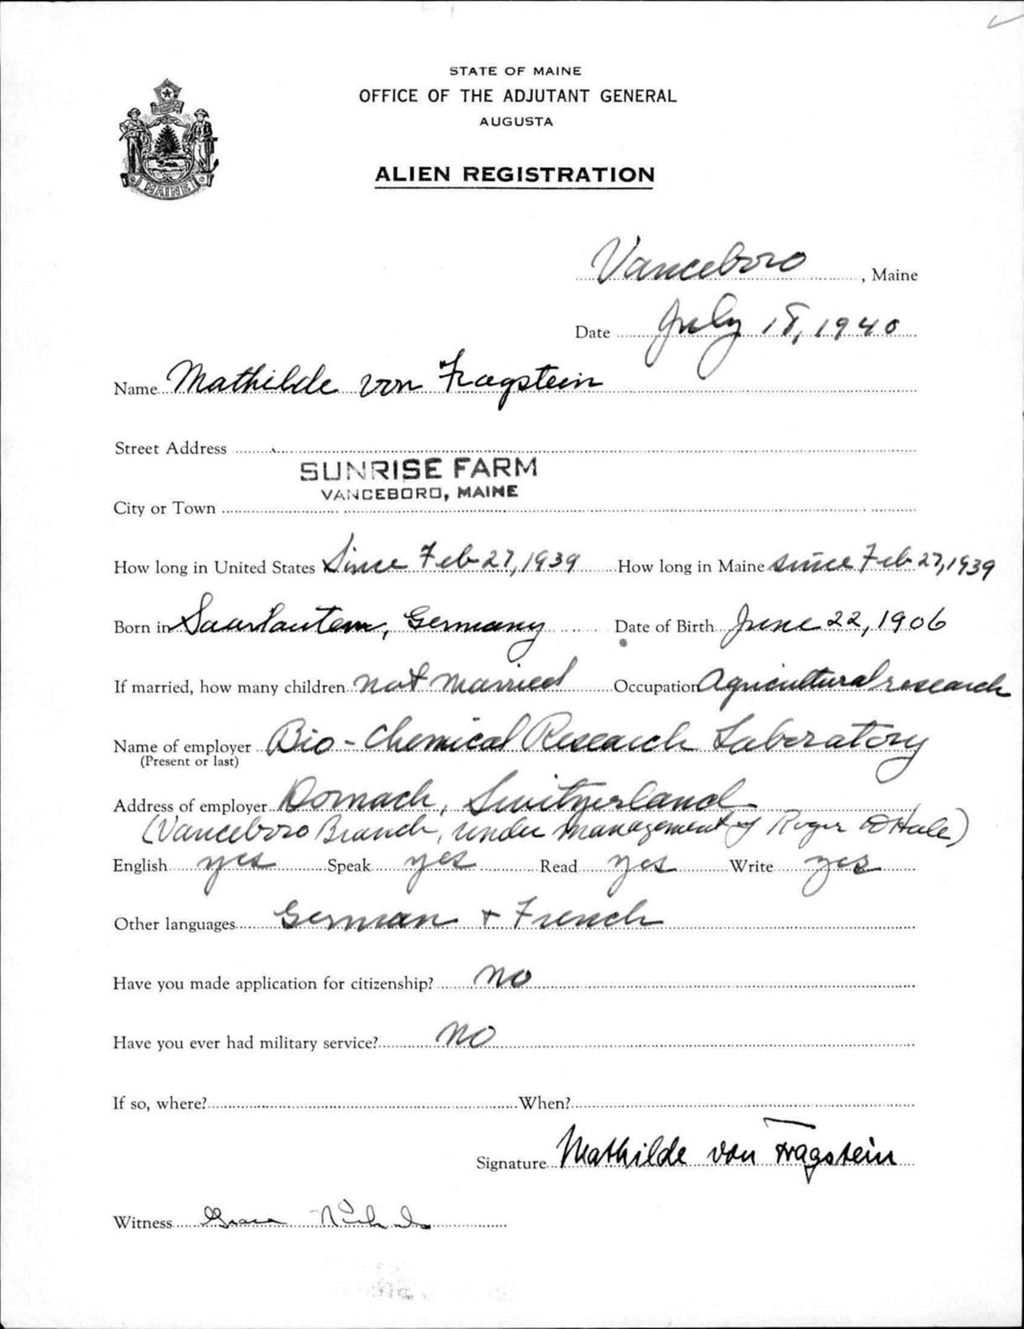 STATE OF MAINE
OFFICE OF THE ADJUTANT GENERAL
AUGUSTA
ALIEN REGISTRATION
MAINE
Vanceboro, Maine
Date July 18, 1940
Name Mathilde von Fragstein
Street Address
SUNRISE FARM
VANCEBORO, MAINE
City or Town
How long in United States Since Feb 27, 1939 How long in Maine since Feb 27, 1939
Born in Saarlautern, Germany Date of Birth June 22, 1906
If married, how many children not married Occupation Agricultural research
Name of employer Bio-Chemical Research Laboratory
(Present or last)
Address of employer Dornach, Switzerland
(Vanceboro Branch, under management of Roger Hale)
English yes Speak yes Read yes Write yes
Other languages German + French
Have you made application for citizenship? No
Have you ever had military service? No
If so, where? When?
Signature Mathilde von Fragstein
Witness Grace